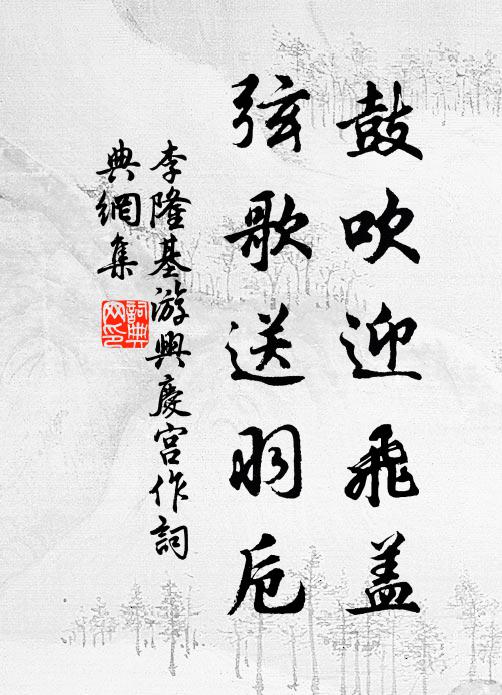 鼓吹迎飛盖
弦歌送羽卮
李隆基游興慶宮作詞
典網集
詞典网印